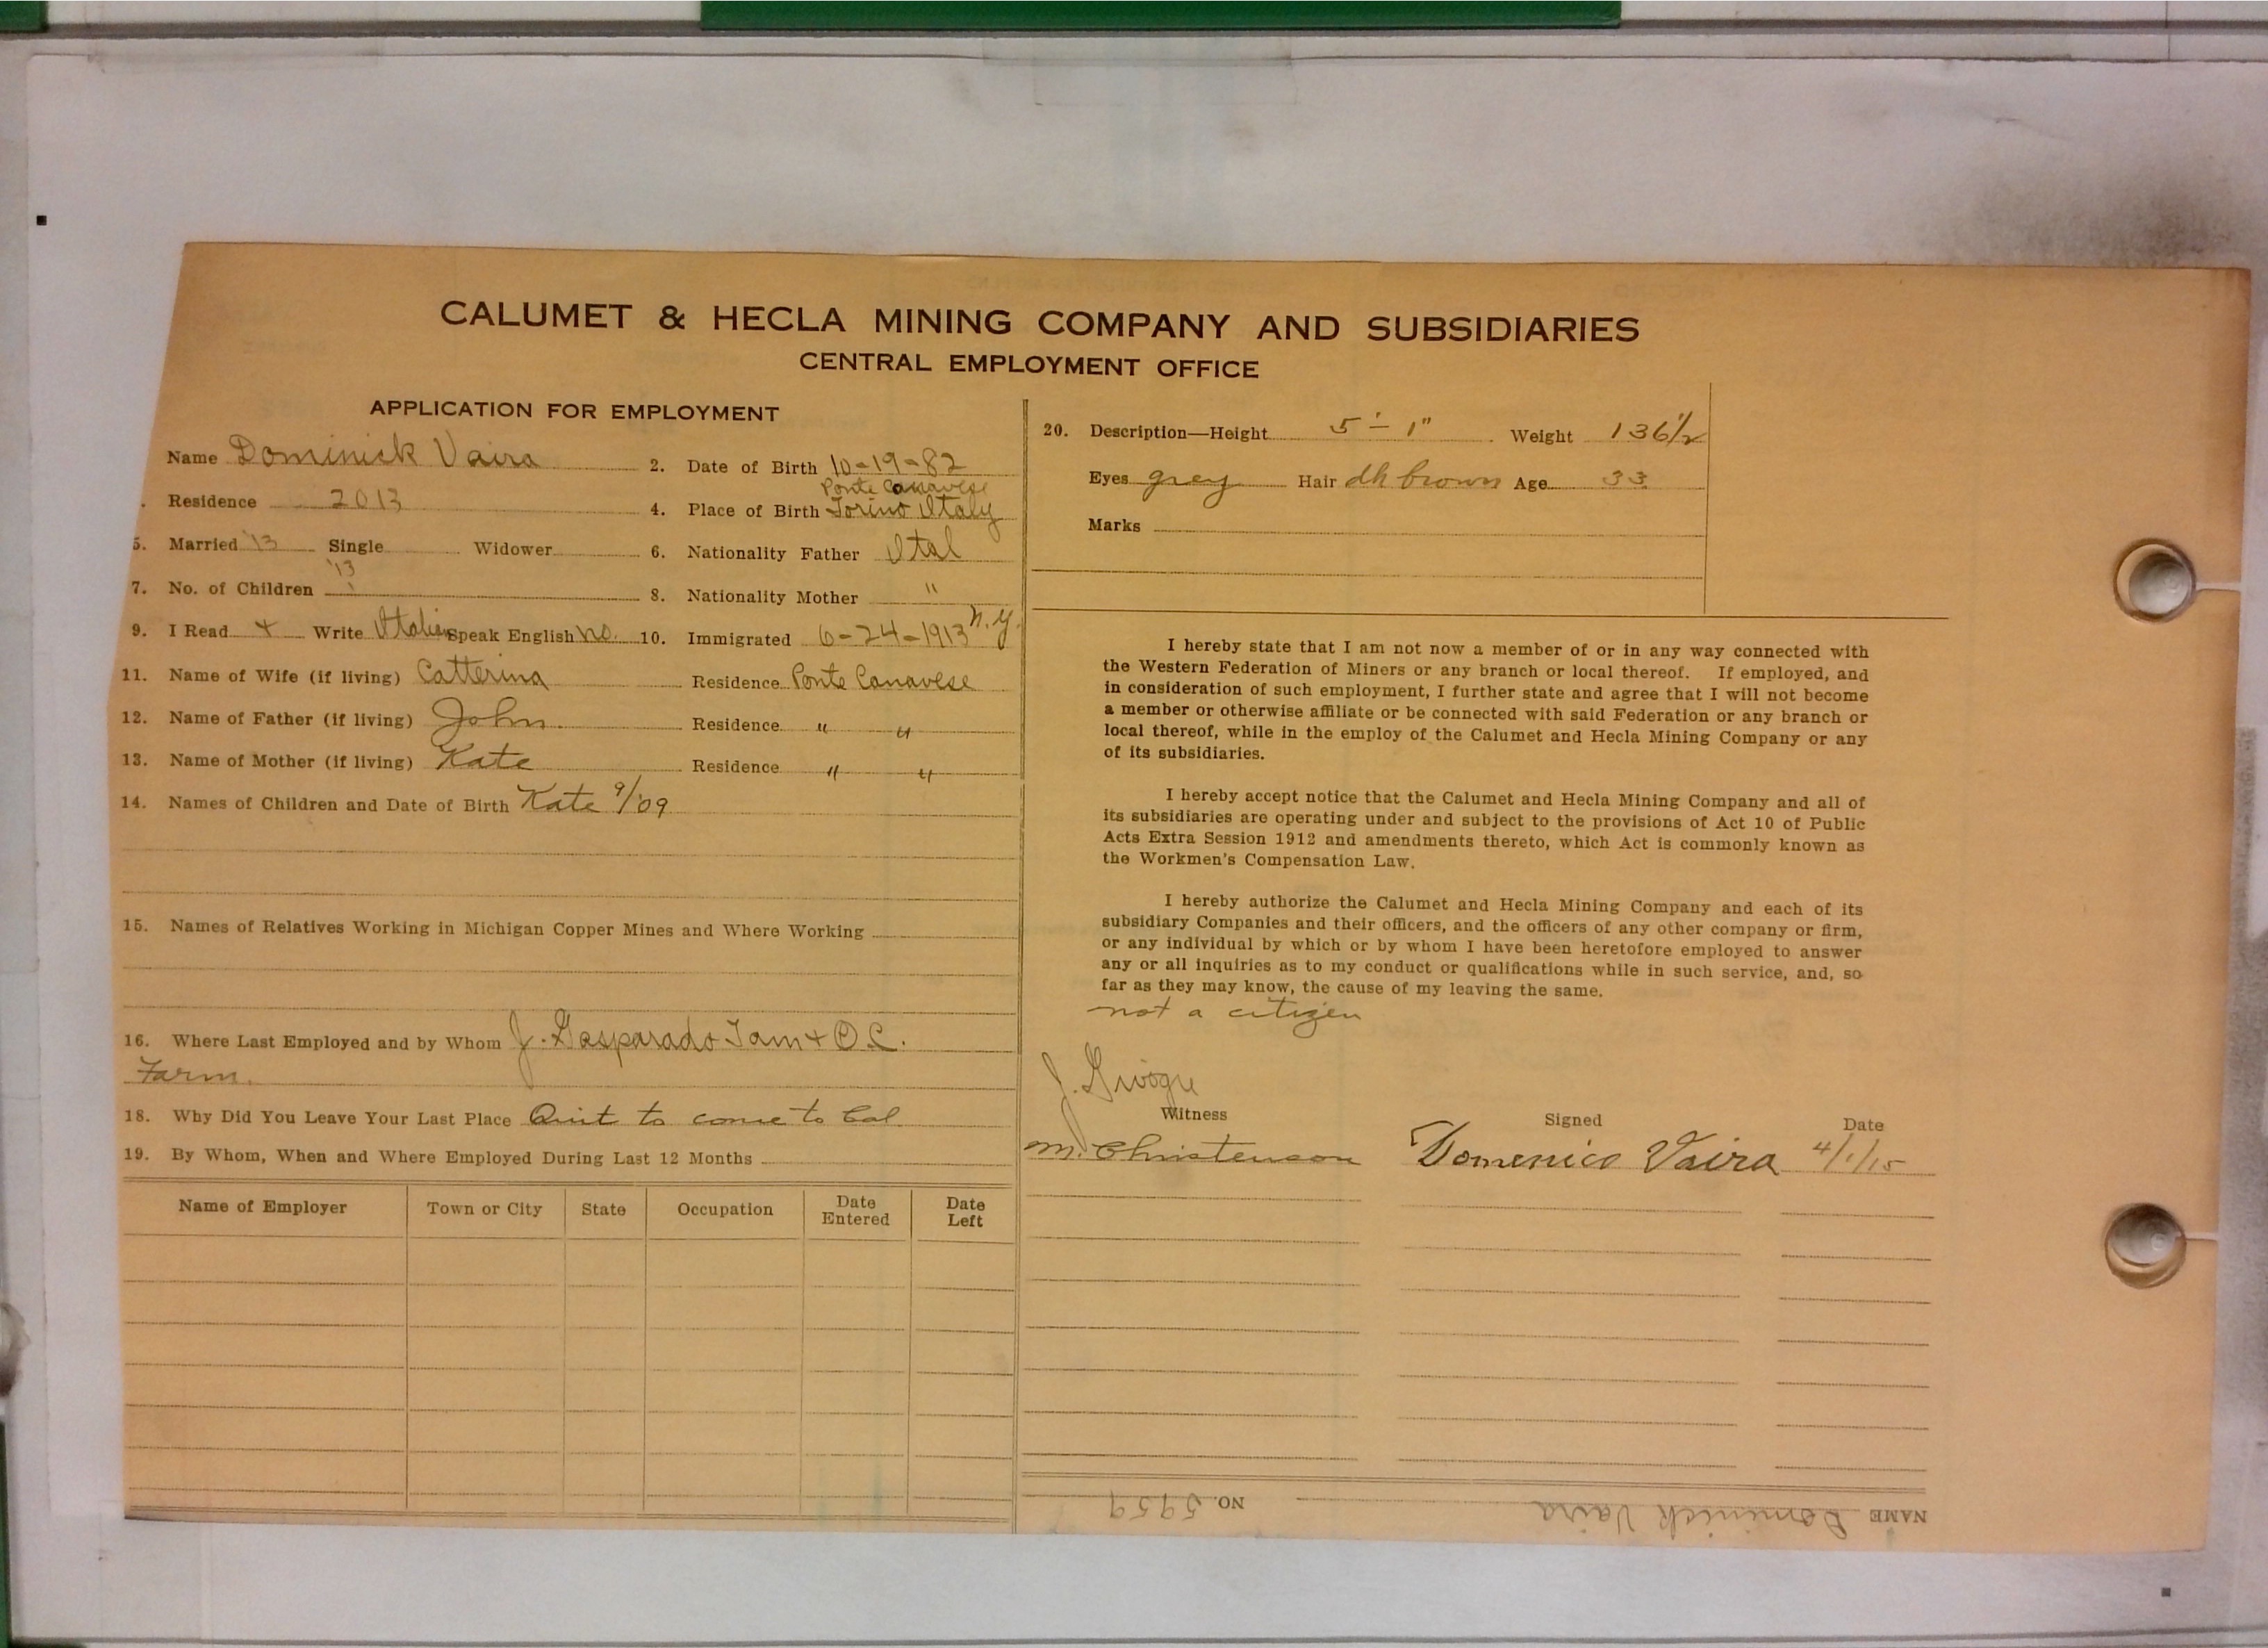 CALUMET & HECLA MINING COMPANY AND SUBSIDIARIES
CENTRAL EMPLOYMENT OFFICE
APPLICATION FOR EMPLOYMENT
Name Dominick Vaira
2. Date of Birth 10-19-82
. Residence 2013
Ponte Canavese
4. Place of Birth Torino Italy
5. Married '13 Single Widower
6. Nationality Father Ital
'13
7. No. of Children 1
8. Nationality Mother "
9. I Read + Write Italian Speak English no.
10. Immigrated 6-24-1913 N.Y.
11. Name of Wife (if living) Catterina Residence Ponte Canavese
12. Name of Father (if living) John. Residence " "
13. Name of Mother (if living) Kate Residence " "
14. Names of Children and Date of Birth Kate 9/'09
15. Names of Relatives Working in Michigan Copper Mines and Where Working
16. Where Last Employed and by Whom J. Gasparado Tam + O.C.
Farm.
18. Why Did You Leave Your Last Place Quit to come to Cal
19. By Whom, When and Where Employed During Last 12 Months
Name of Employer Town or City State Occupation Date Entered Date Left
20. Description—Height 5'-1" Weight 136½
Eyes grey Hair dk brown Age 33
Marks
I hereby state that I am not now a member of or in any way connected with
the Western Federation of Miners or any branch or local thereof. If employed, and
in consideration of such employment, I further state and agree that I will not become
a member or otherwise affiliate or be connected with said Federation or any branch or
local thereof, while in the employ of the Calumet and Hecla Mining Company or any
of its subsidiaries.
I hereby accept notice that the Calumet and Hecla Mining Company and all of
its subsidiaries are operating under and subject to the provisions of Act 10 of Public
Acts Extra Session 1912 and amendments thereto, which Act is commonly known as
the Workmen's Compensation Law.
I hereby authorize the Calumet and Hecla Mining Company and each of its
subsidiary Companies and their officers, and the officers of any other company or firm,
or any individual by which or by whom I have been heretofore employed to answer
any or all inquiries as to my conduct or qualifications while in such service, and, so
far as they may know, the cause of my leaving the same.
not a citizen
J.
Witness Signed Date
M. Christenson Domenico Vaira 4/1/15
NAME Dominick Vaira NO. 5959